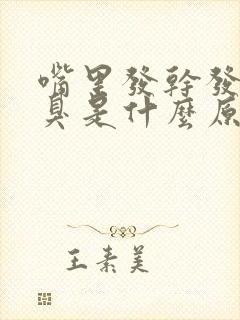 嘴里發幹發
臭是什麼原
王素美